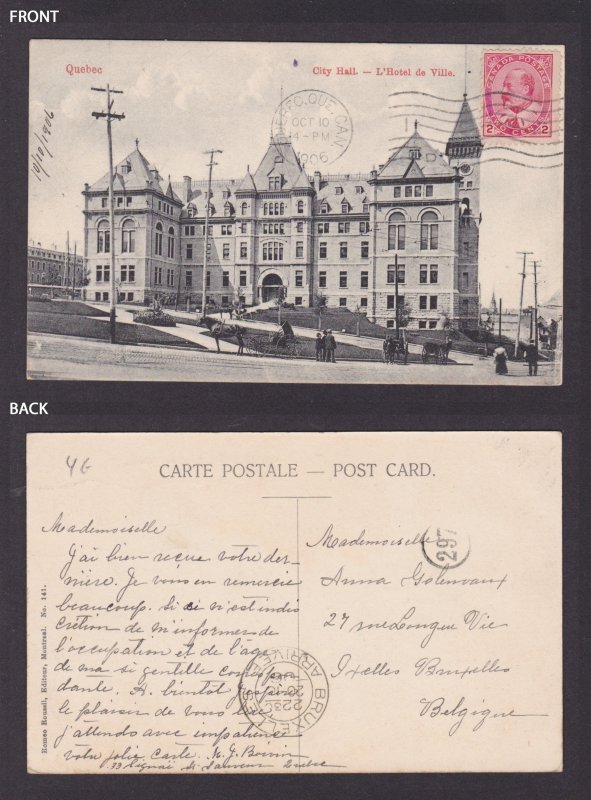 FRONT
Quebec
City Hall. — L'Hotel de Ville.
CANADA POSTAGE
2 2
TWO CENTS
QUE. CAN.
OCT 10
4-PM
1906
10/10/1906
BACK
4G
CARTE POSTALE — POST CARD.
Mademoiselle
J'ai bien reçue votre der-
nière. Je vous en remercie
beaucoup. Si ce n'est indis
crétion de m'informer de
l'occupation et de l'age
de ma si gentille correspon
dante. A bientôt j'espère
le plaisir de vous lire
j'attends avec impatience
votre jolie carte. M. G. Boivin
St Sauveur Quebec
Romeo Roussil, Editeur, Montreal. No. 141.
Mademoiselle
297
Anna
27 rue Longue Vie
Ixelles Bruxelles
Belgique
BRUXELLES
ARRIVEE